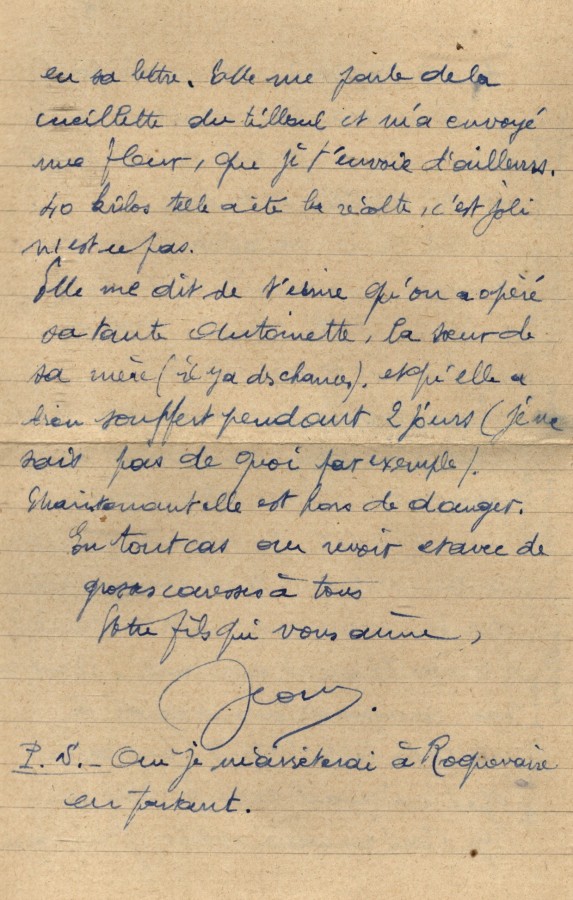 en sa lettre. Elle me parle de la
cueillette du tilleul et m'a envoyé
une fleur, que je t'envoie d'ailleurs.
40 kilos telle a été la récolte, c'est joli
n'est ce pas.
Elle me dit de t'écrire qu'on a opéré
sa tante Antoinette, la sœur de
sa mère (il y a des chances), et qu'elle a
bien souffert pendant 2 jours (je ne
sais pas de quoi par exemple).
Maintenant elle est hors de danger.
En tout cas au revoir et avec de
grosses caresses à tous
Votre fils qui vous aime,
Jean.
P. S. - Oui je m'arrêterai à Roquevaire
en partant.